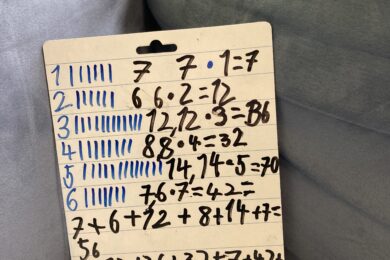 1 ||||||| 7 7 · 1 = 7
2 |||||| 6 6 · 2 = 12
3 |||||||||||| 12, 12 · 3 = B6
4 |||||||| 8 8 · 4 = 32
5 |||||||||||||| 14, 14 · 5 = 70
6 ||||||| 7 6 · 7 = 42 =
7 + 6 + 12 + 8 + 14 + 7 =
56